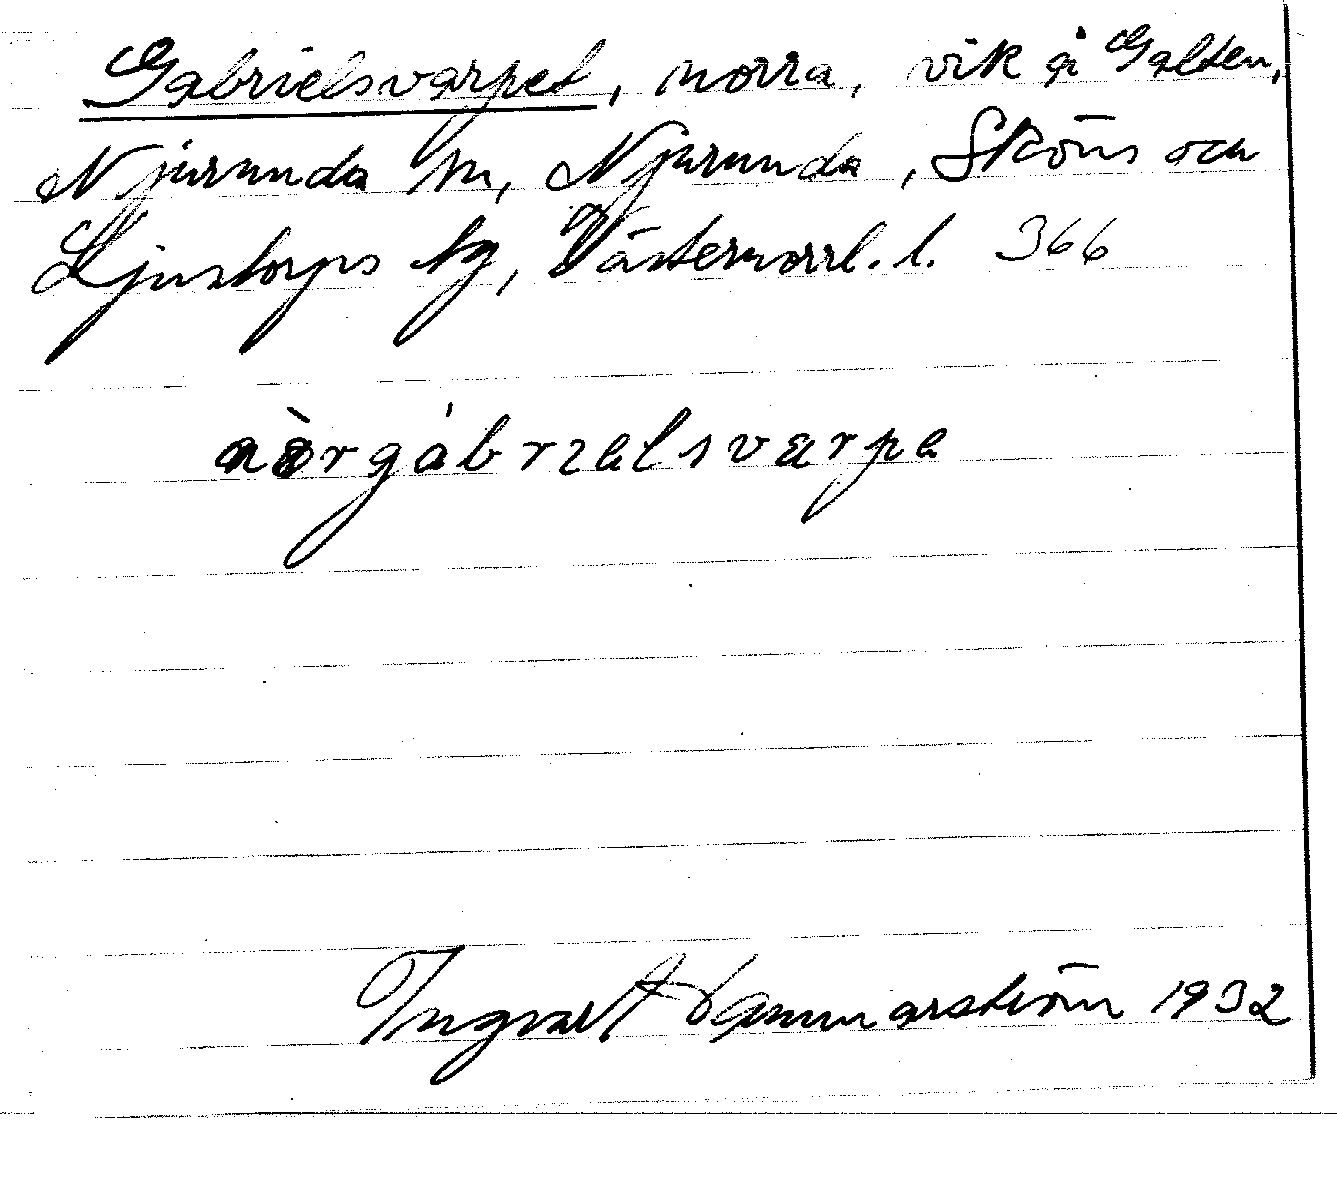 Gabrielsvarpet, norra, vik å Galten,
Njurunda sn, Njurunda, Sköns och
Ljustorps tg, Västernorrl. l. 366
Ingvar Hammarström 1932